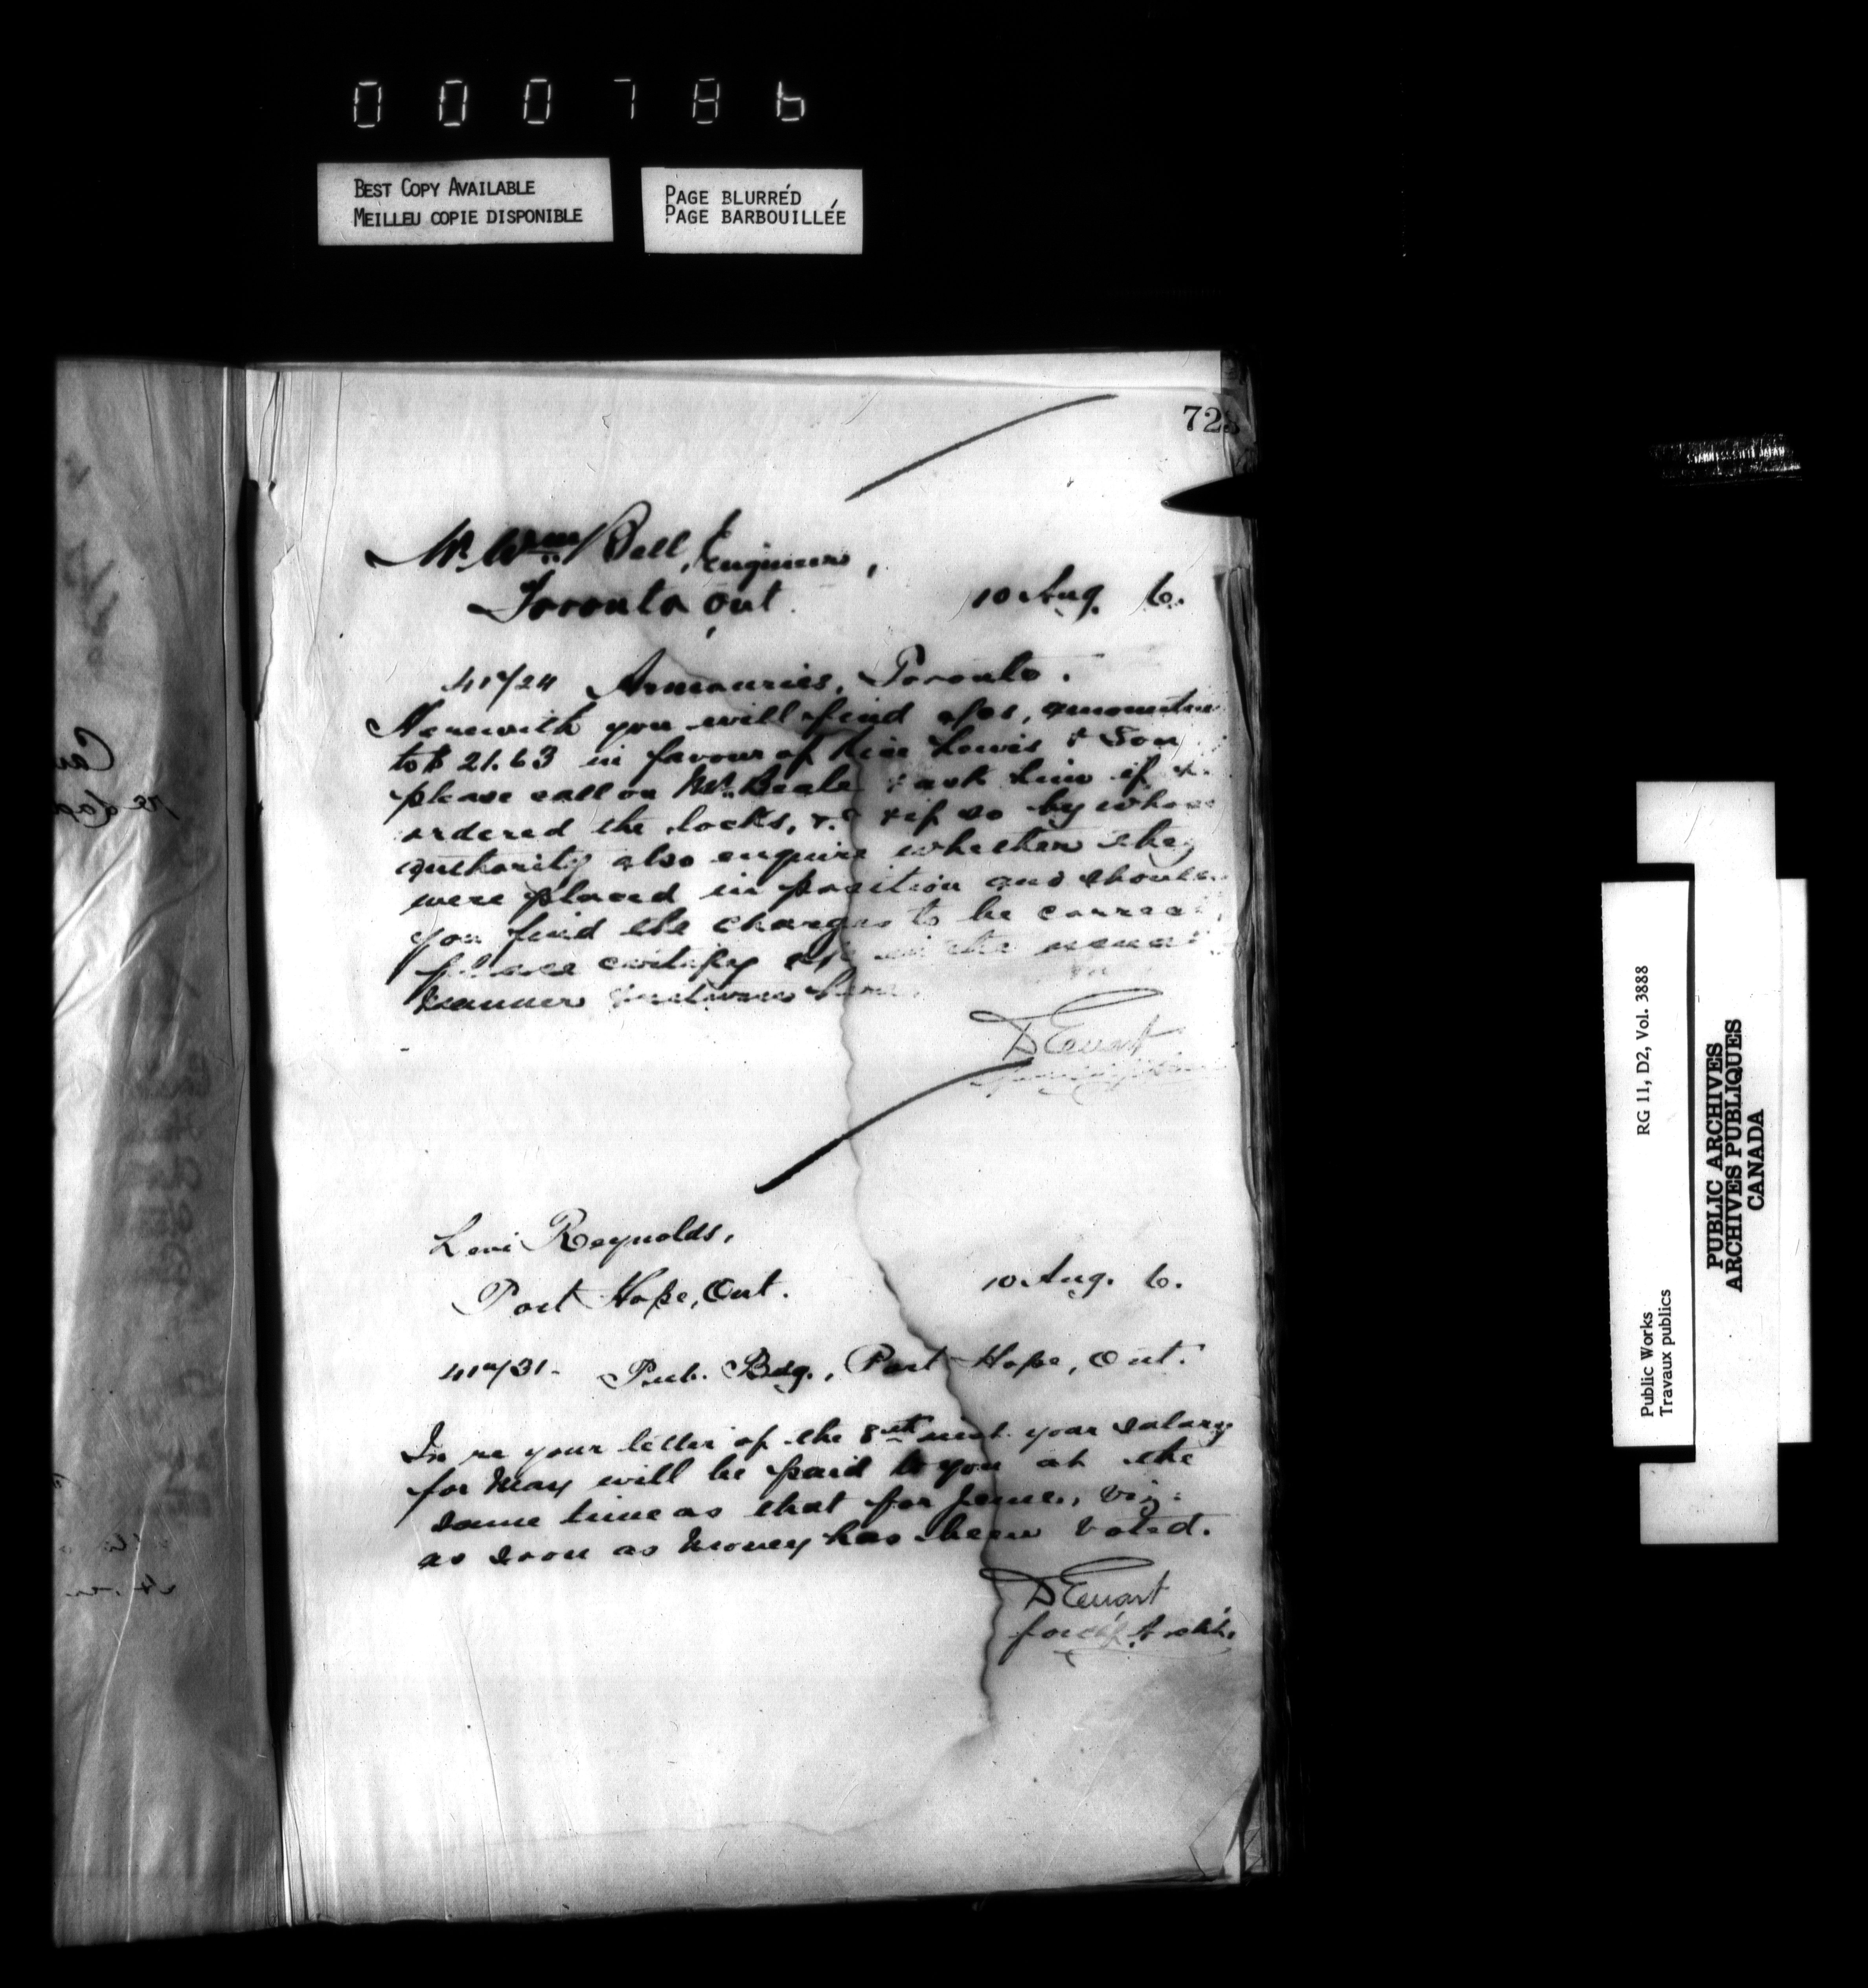 000786
BEST COPY AVAILABLE
MEILLEU COPIE DISPONIBLE
PAGE BLURRÉD
PAGE BARBOUILLÉE
723
Mr. Wm Bell, Engineer,
Toronto Ont.
10 Aug. 6.
Armouries, Toronto.
Herewith you will find a/cs, amounting
to $21.63 in favour of Rice Lewis & Son
please call on Mr. Beale & ask him if he
ordered the locks, &c & if so by whose
authority also enquire whether they
were placed in position and should
you find the charges to be correct,
please certify in the usual
manner
D Ewart
Levi Reynolds,
Port Hope, Ont.
10 Aug. 6.
Pub. Bdg., Port Hope, Ont.
In re your letter of the 8th inst. your salary
for May will be paid to you at the
same time as that for June, viz:
as soon as money has been voted.
D Ewart
Public Works
Travaux publics
RG 11, D2, Vol. 3888
PUBLIC ARCHIVES
ARCHIVES PUBLIQUES
CANADA